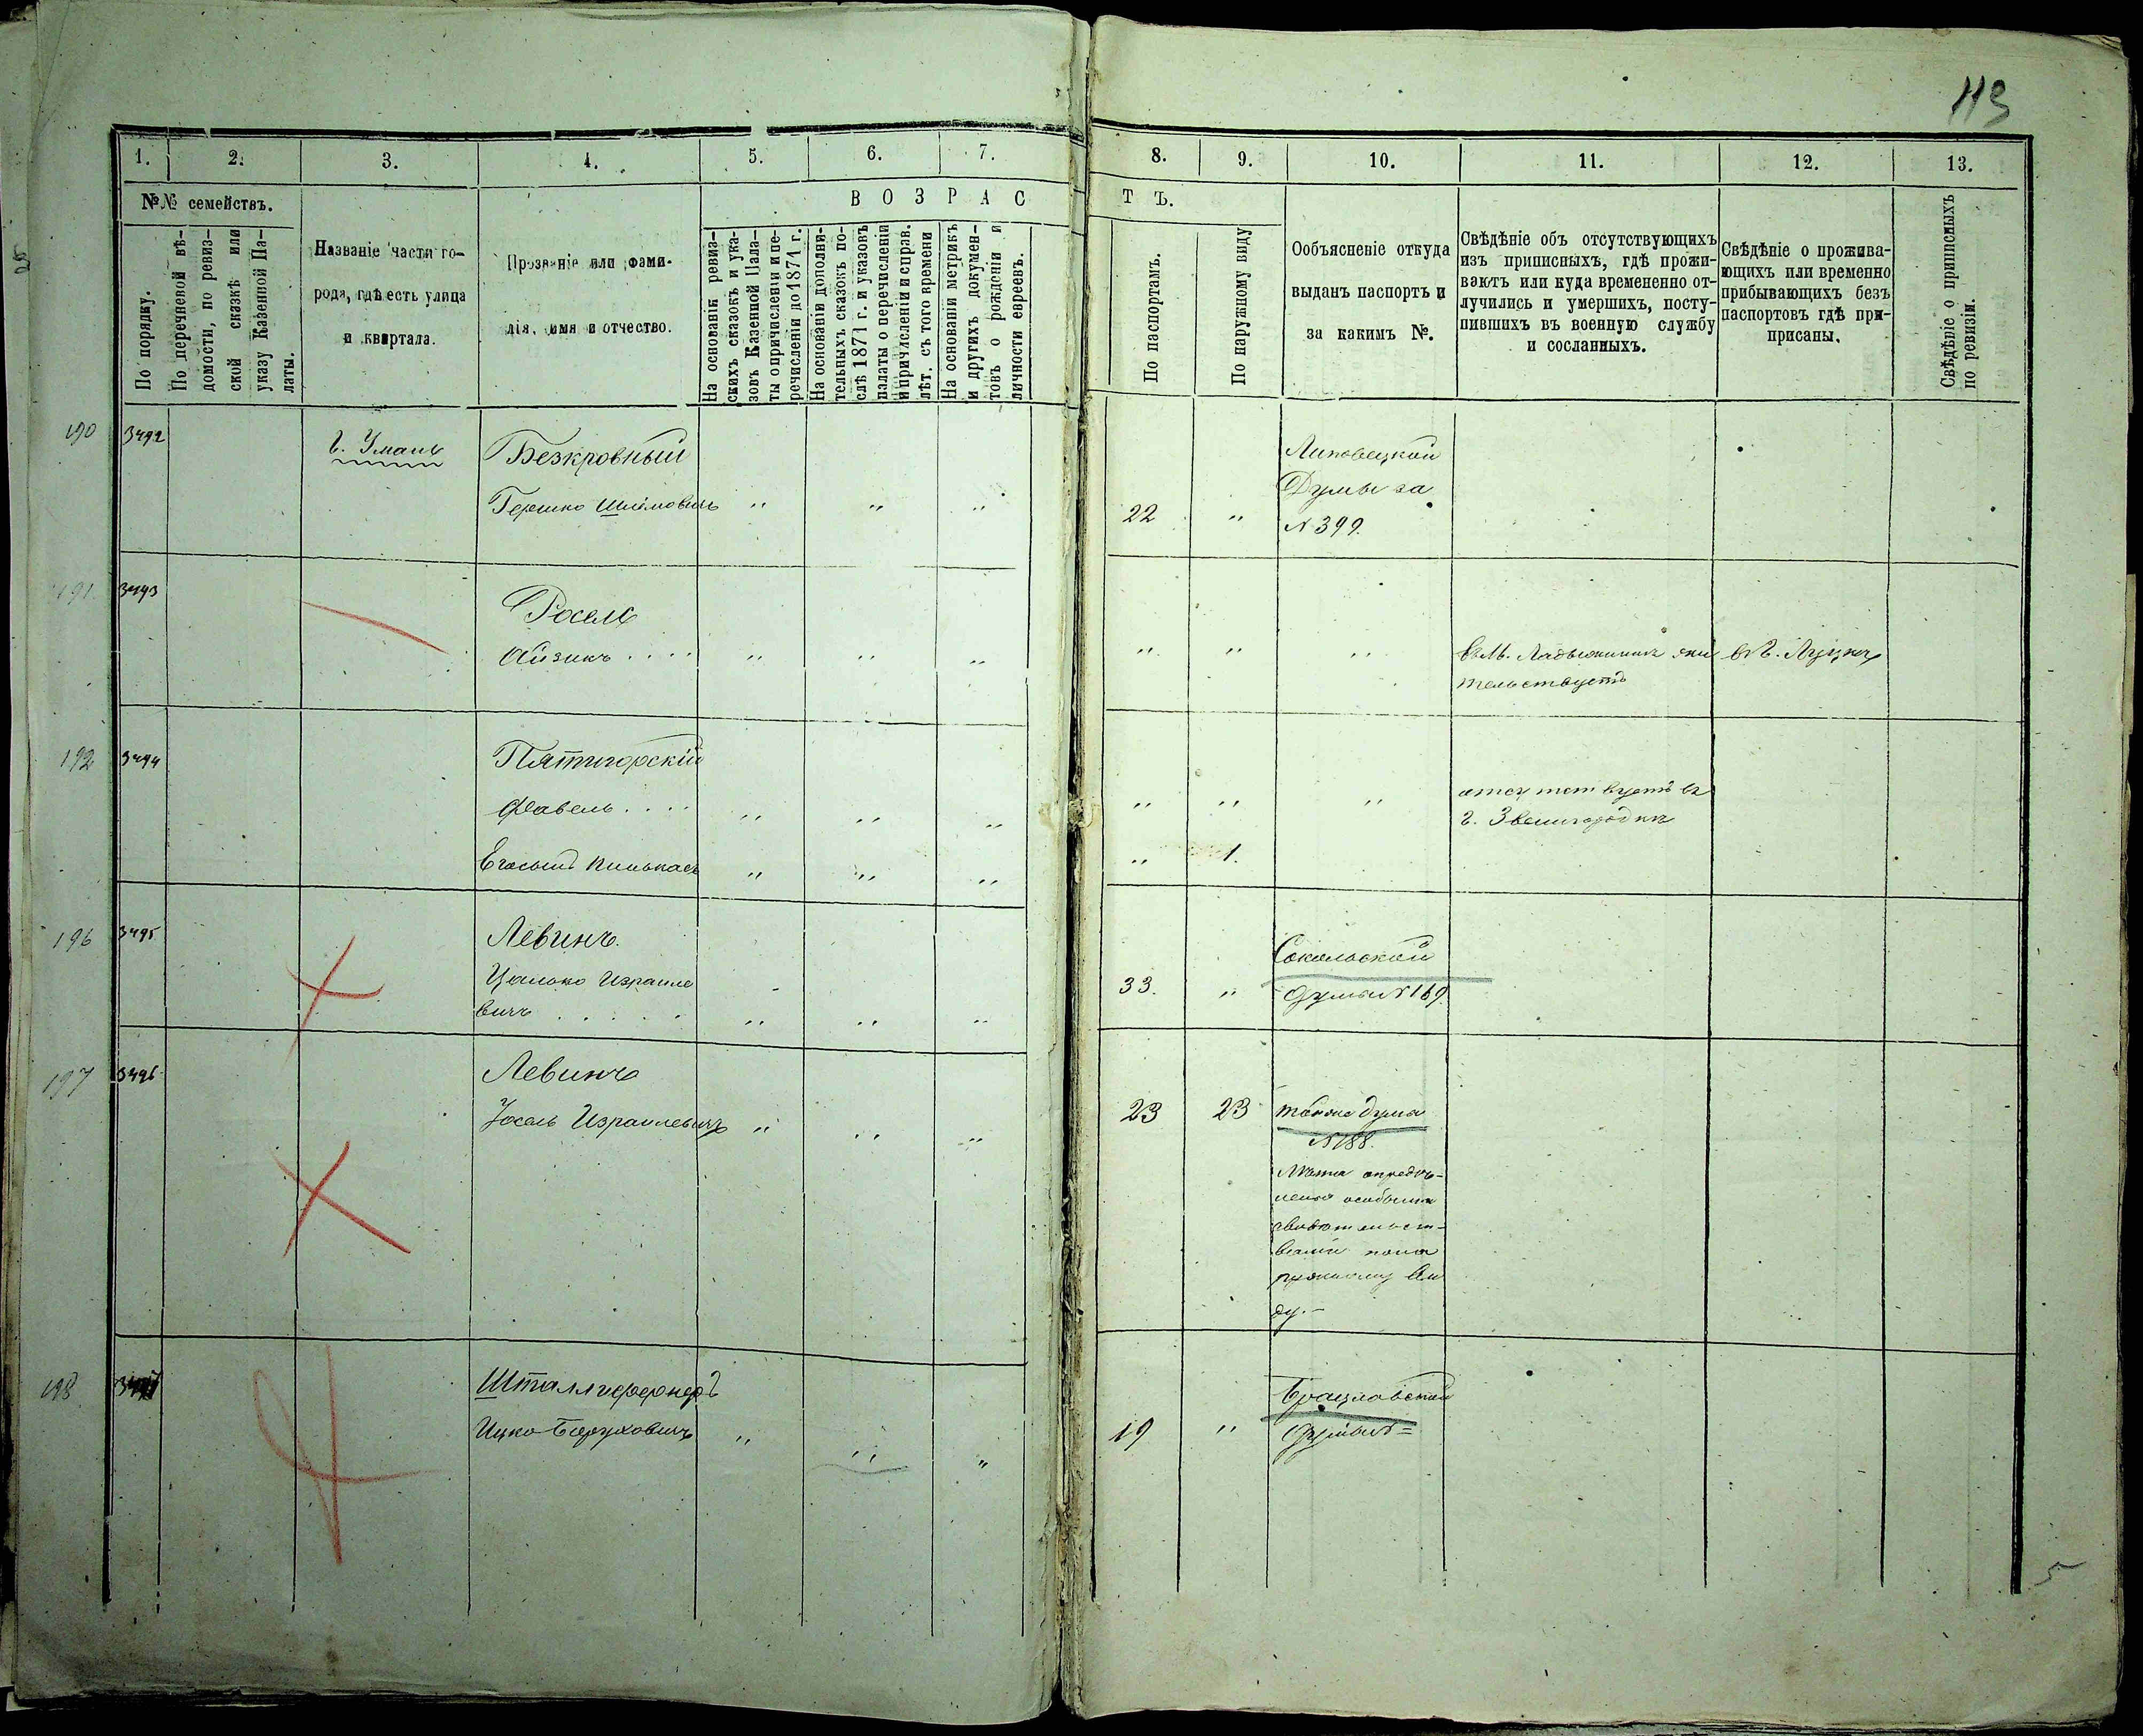 113
1. 2. 3. 4. 5. 6. 7. 8. 9. 10. 11. 12. 13.
№№ семействъ.
По порядку.
По перечневой вѣ-
домости, по ревиз-
ской сказкѣ или
указу Казенной Па-
латы.
Названіе части го-
рода, гдѣ есть улица
и квартала.
Прозваніе или фами-
лія, имя и отчество.
ВОЗРАС
ТЪ.
На основаніи ревиз-
скихъ сказокъ и ука-
зовъ Казенной Пала-
ты о причисленіи и пе-
речисленіи до 1871 г.
На основаніи дополни-
тельныхъ сказокъ по-
слѣ 1871 г. и указовъ
палаты о перечисленіи
и причисленіи и справ.
лѣт. съ того времени
На основаніи метрикъ
и другихъ докумен-
товъ о рожденіи и
личности евреевъ.
По паспортамъ.
По наружному виду
Ообъясненіе откуда
выданъ паспортъ и
за какимъ №.
Свѣдѣніе объ отсутствующихъ
изъ приписныхъ, гдѣ прожи-
ваютъ или куда времененно от-
лучились и умершихъ, посту-
пившихъ въ военную службу
и сосланныхъ.
Свѣдѣніе о прожива-
ющихъ или временно
прибывающихъ безъ
паспортовъ гдѣ при-
приписаны.
Свѣдѣніе о приписныхъ
по ревизіи.
190 3492 г. Умань Безкровный
Гершко Шлёмовичъ " " " 22 "
Липовецкой
Думы за
№ 399.
191 3493 Росель
Айзикъ . . . . " " " " " " въ М. Ладыжинкѣ жи въ г. Луцкѣ
тельствуетъ
192 3494 Пятигорскій
Фавель . . . . " " " " " "
отсутствуетъ въ
г. Звенигородкѣ
Его сынъ Пинькасъ " " " " 1.
196 3495 Левинъ.
Цалько Израиле
вичъ . . . . . " " " 33. "
Сокольской
думы № 169.
197 3496 Левинъ
Іосель Израилевичъ " " " 23 23 таже дума
№ 188.
Лѣта опредѣ-
лены особыми
свидѣтельст-
вами по на
ружному ви
ду.-
198 Шталлиффонфъ
Ицко Беруховичъ " " " 19 "
Брацлавской
Думы № =